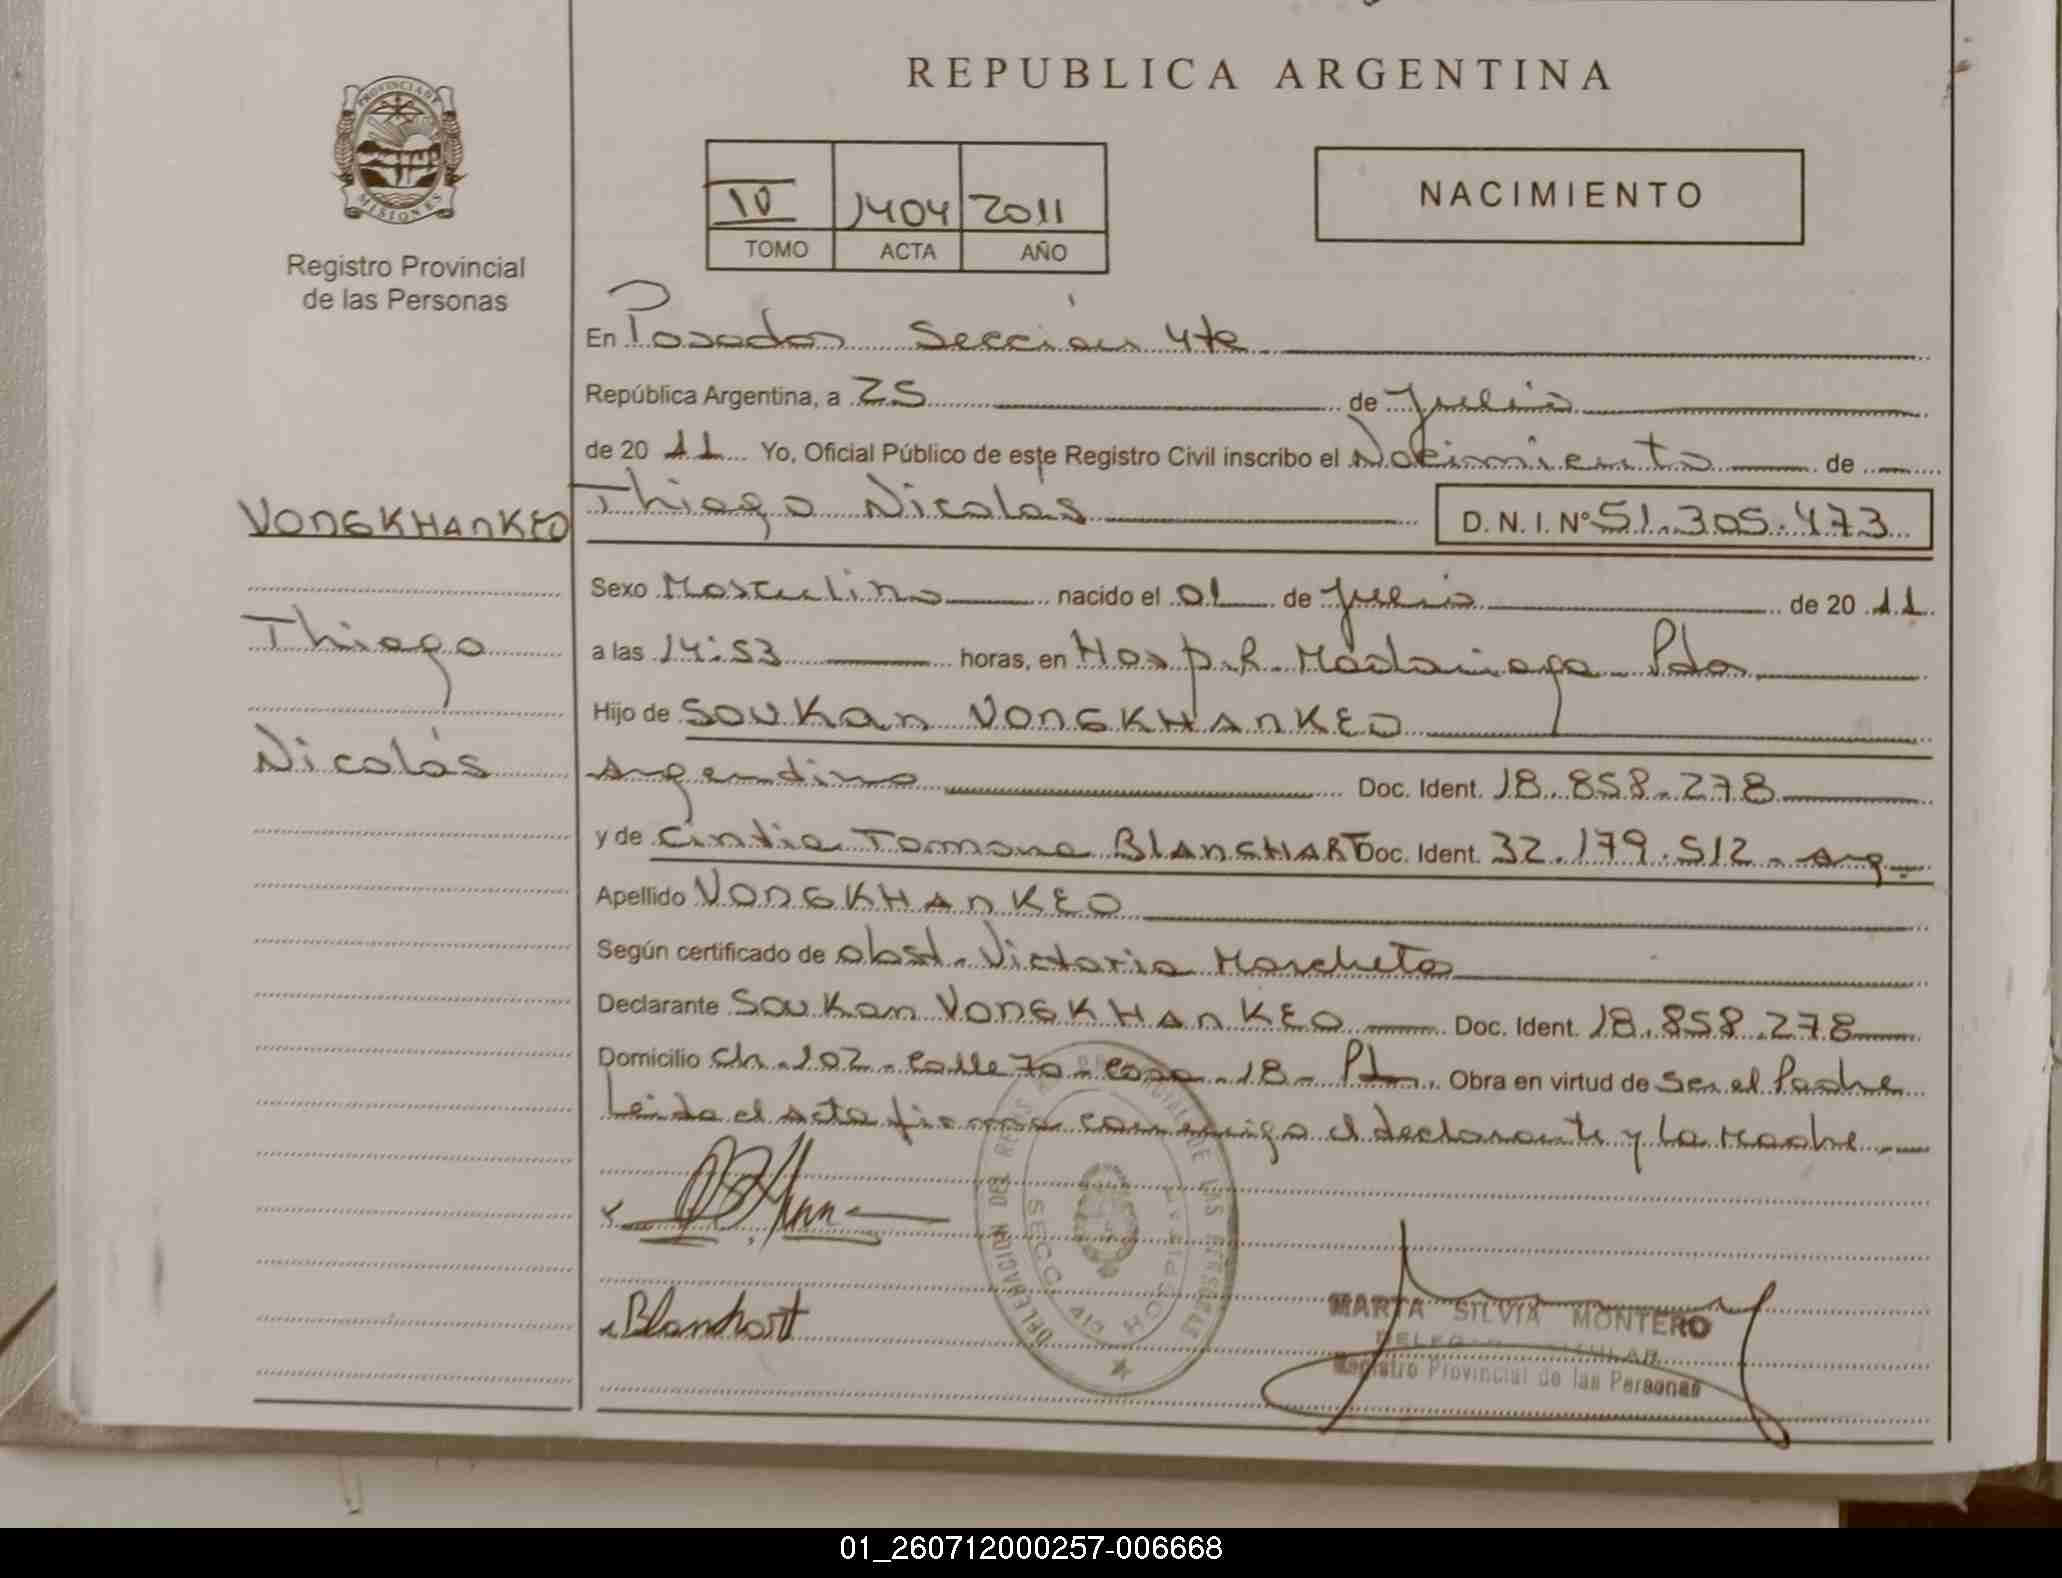 REPUBLICA ARGENTINA
PROVINCIA DE
MISIONES
Registro Provincial
de las Personas
IV 1404 2011
TOMO ACTA AÑO
NACIMIENTO
En Posadas Sección 4ta
República Argentina, a 25 de Julio
de 2011 Yo, Oficial Público de este Registro Civil inscribo el Nacimiento de
Thiago Nicolas D. N. I. Nº 51.305.473
VONGKHANKEO
Thiago
Nicolás
Sexo Masculino nacido el 01 de Julio de 2011
a las 14:53 horas, en Hosp. R. Madariaga Pdas
Hijo de SOUKAN VONGKHANKEO
Argentino Doc. Ident. 18.858.278
y de Cintia Tamara BLANCHART Doc. Ident. 32.179.512 - Arg.
Apellido VONGKHANKEO
Según certificado de obst. Victoria
Declarante SOUKAN VONGKHANKEO Doc. Ident. 18.858.278
Domicilio Ch. 102 - Calle 70 - Casa - 18 - Obra en virtud de Ser el Padre
Leida el Acta firma conmigo el declarante y la Madre
Blanchart
DELEGACION DEL REGISTRO PROVINCIAL DE LAS PERSONAS
SECC. 4ta HOSPITAL
MARTA SILVIA MONTERO
DELEGADA TITULAR
Registro Provincial de las Personas
01_260712000257-006668